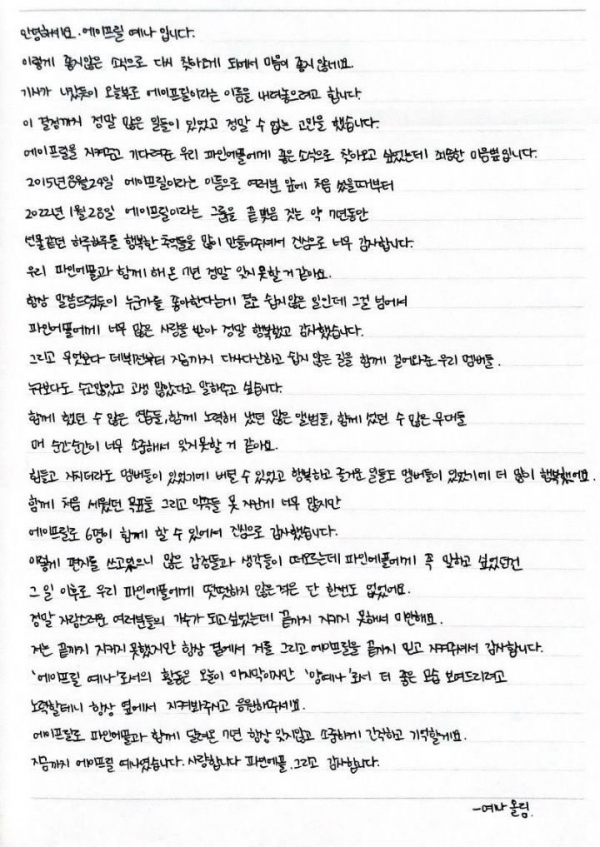 안녕하세요. 에이프릴 예나 입니다.
이렇게 좋지않은 소식으로 다시 찾아오게 되어서 마음이 좋지 않네요.
기사가 나갔듯이 오늘부로 에이프릴이라는 이름을 내려놓으려고 합니다.
이 결정까지 정말 많은 일들이 있었고 정말 수 없는 고민을 했습니다.
에이프릴을 지켜주고 기다려준 우리 파인에플에게 좋은 소식으로 찾아오고 싶었는데 죄송한 마음뿐 입니다.
2015년 8월 24일 에이프릴이라는 이름으로 여러분 앞에 처음 섰을때부터
2022년 1월 28일 에이프릴이라는 그룹을 끝 맺음 짓는 약 7년동안
선물같던 하루하루를 행복한 추억들을 많이 만들어주셔서 진심으로 너무 감사합니다.
우리 파인에플과 함께 해 온 7년 정말 잊지 못할 거 같아요.
항상 말씀드렸듯이 누군가를 좋아한다는게 결코 쉽지않은 일인데 그걸 넘어서
파인에플에게 너무 많은 사랑을 받아 정말 행복했고 감사했습니다.
그리고 무엇보다 데뷔전부터 지금까지 다사다난하고 쉽지 않은 길을 함께 걸어와준 우리 멤버들.
누구보다도 수고많았고 고생 많았다고 말하고 싶습니다.
함께 했던 수 많은 연습들, 함께 노력해 냈던 많은 앨범들, 함께 섰던 수 많은 무대들
매 순간순간이 너무 소중해서 잊지못할 거 같아요.
힘들고 지치더라도 멤버들이 있었기에 버틸 수 있었고 행복하고 즐거운 일들도 멤버들이 있었기에 더 많이 행복했어요.
함께 처음 세웠던 목표들 그리고 약속들 못 지킨게 너무 많지만
에이프릴로 6명이 함께 할 수 있어서 진심으로 감사했습니다.
이렇게 편지를 쓰고있으니 많은 감정들과 생각들이 떠오르는데 파인에플에게 꼭 말하고 싶었던건
그 일 이후로 우리 파인에플에게 떳떳하지 않은적은 단 한번도 없었어요.
정말 자랑스러운 여러분들의 가수가 되고싶었는데 끝까지 지키지 못해서 미안해요.
저는 끝까지 지키지 못했지만 항상 곁에서 저를 그리고 에이프릴을 끝까지 믿고 지켜주셔서 감사합니다.
'에이프릴 예나'로서의 활동은 오늘이 마지막이지만 '양예나'로서 더 좋은 모습 보여드리려고
노력할테니 항상 옆에서 지켜봐주시고 응원해주세요.
에이프릴로 파인에플과 함께 달려온 7년 항상 잊지않고 소중하게 간직하고 기억할게요.
지금까지 에이프릴 예나였습니다. 사랑합니다 파인에플. 그리고 감사합니다.
-예나 올림.